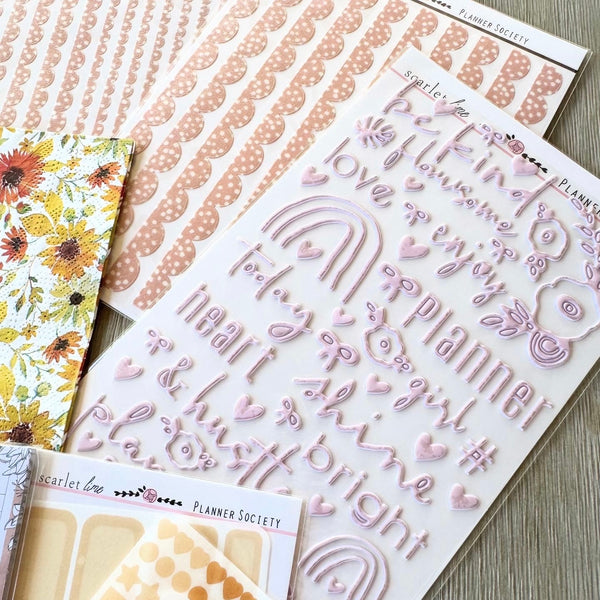 PLANNER SOCIETY
scarlet lime
PLANNER SOCIETY
be kind
love
enjoy
today
planner
heart
girl
& hustle
shine
#
plan
bright
scarlet lime
PLANNER SOCIETY